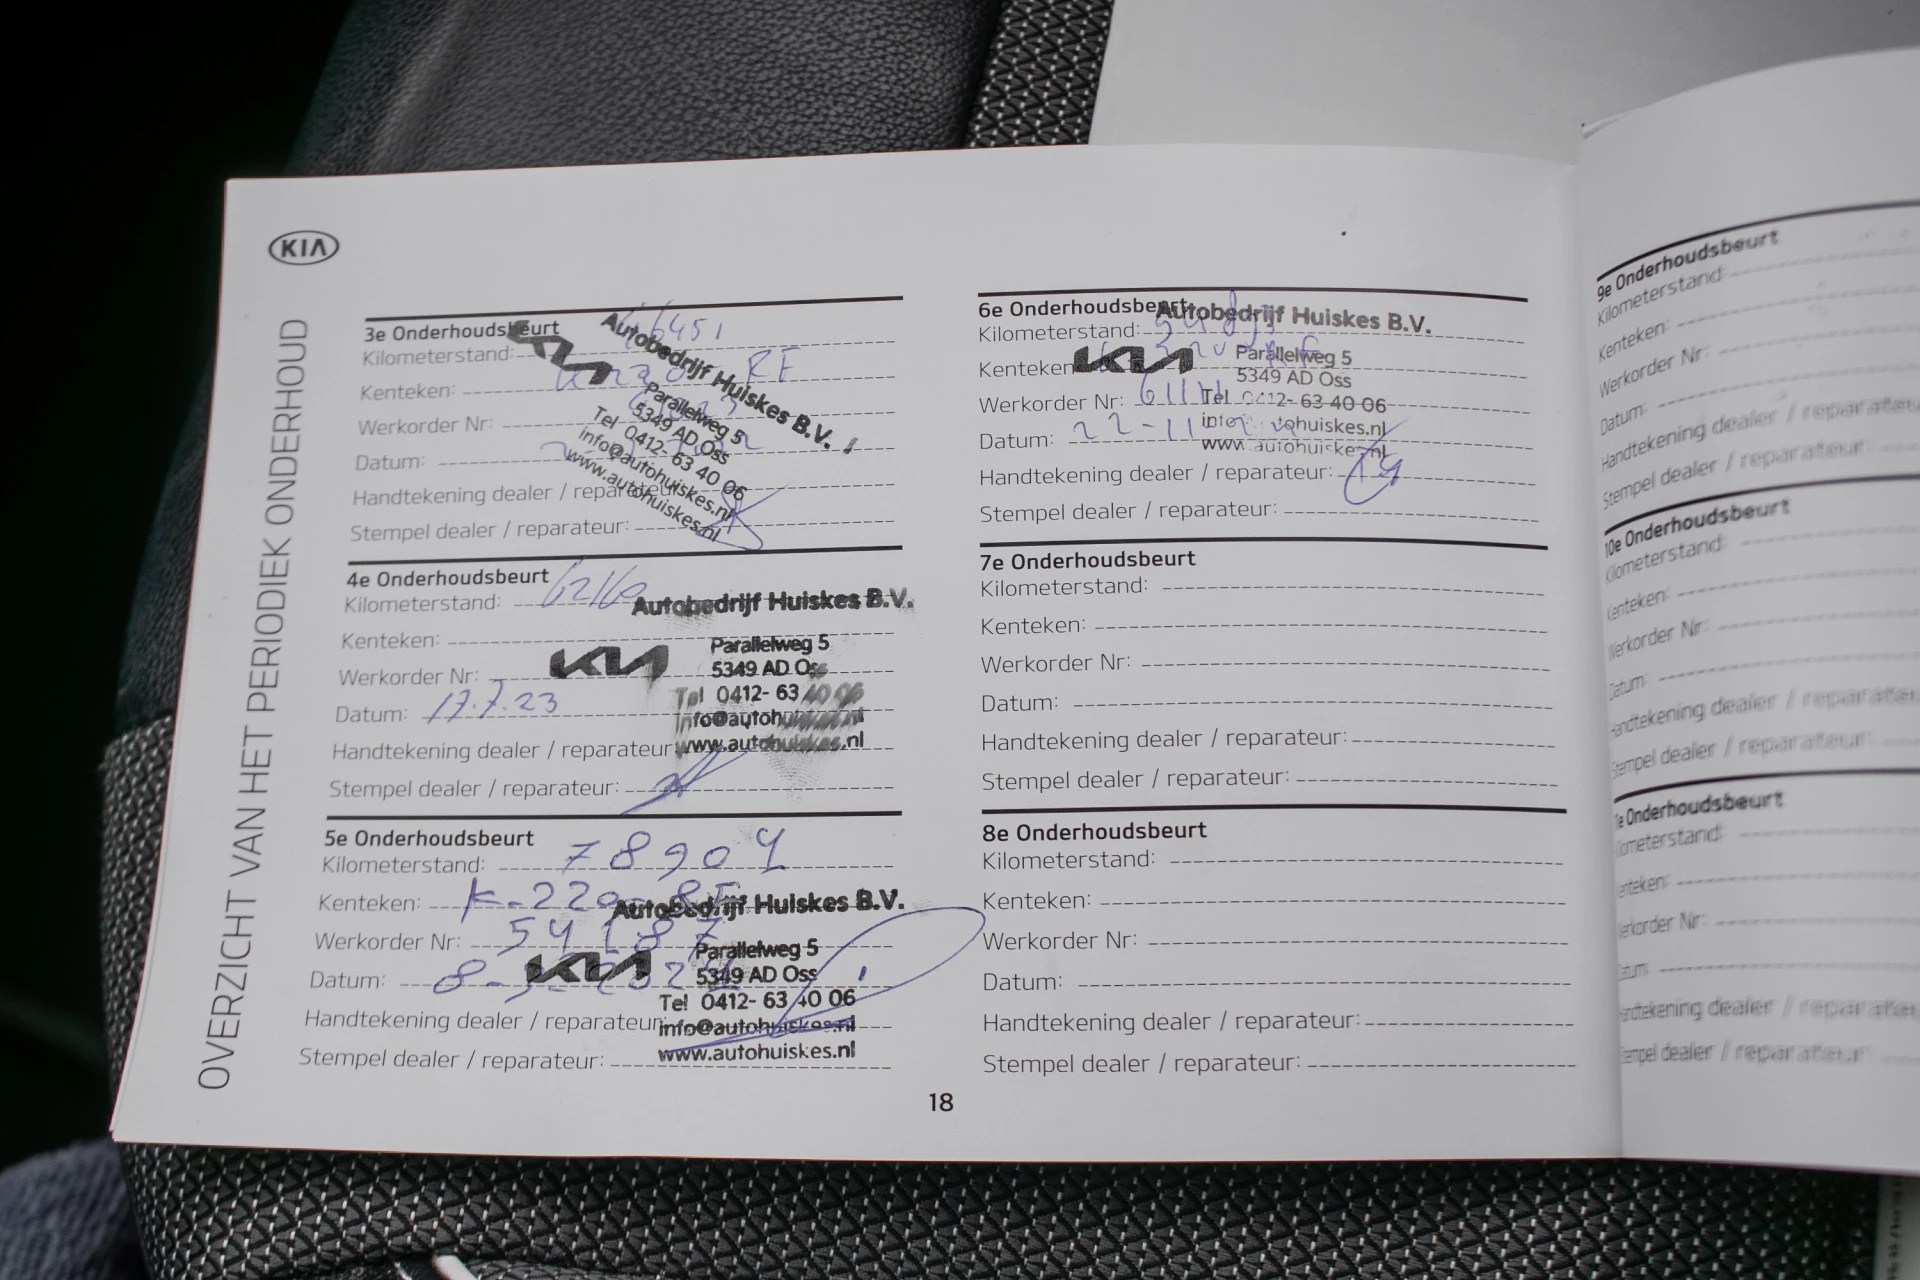 KIA
OVERZICHT VAN HET PERIODIEK ONDERHOUD
3e Onderhoudsbeurt
Kilometerstand: 46451
Kenteken: RF
Werkorder Nr:
Datum:
Handtekening dealer / reparateur
Stempel dealer / reparateur:
KIA
Autobedrijf Huiskes B.V.
Parallelweg 5
5349 AD Oss
Tel 0412- 63 40 06
info@autohuiskes.nl
www.autohuiskes.nl
4e Onderhoudsbeurt
Kilometerstand:
Kenteken:
Werkorder Nr:
Datum: 17.7.23
Handtekening dealer / reparateur
Stempel dealer / reparateur:
KIA
Autobedrijf Huiskes B.V.
Parallelweg 5
5349 AD Oss
Tel 0412- 63 40 06
info@autohuiskes.nl
www.autohuiskes.nl
5e Onderhoudsbeurt
Kilometerstand: 78904
Kenteken: K-220-RF
Werkorder Nr: 54187
Datum:
Handtekening dealer / reparateur:
Stempel dealer / reparateur:
KIA
Autobedrijf Huiskes B.V.
Parallelweg 5
5349 AD Oss
Tel 0412- 63 40 06
info@autohuiskes.nl
www.autohuiskes.nl
6e Onderhoudsbeurt
Kilometerstand:
Kenteken
Werkorder Nr:
Datum: 22-11-
Handtekening dealer / reparateur:
Stempel dealer / reparateur:
KIA
Autobedrijf Huiskes B.V.
Parallelweg 5
5349 AD Oss
Tel 0412- 63 40 06
info@autohuiskes.nl
www.autohuiskes.nl
7e Onderhoudsbeurt
Kilometerstand:
Kenteken:
Werkorder Nr:
Datum:
Handtekening dealer / reparateur:
Stempel dealer / reparateur:
8e Onderhoudsbeurt
Kilometerstand:
Kenteken:
Werkorder Nr:
Datum:
Handtekening dealer / reparateur:
Stempel dealer / reparateur:
18
9e Onderhoudsbeurt
Kilometerstand:
Kenteken:
Werkorder Nr:
Datum:
Handtekening dealer / reparateur
Stempel dealer / reparateur:
10e Onderhoudsbeurt
Kilometerstand:
Kenteken:
Werkorder Nr:
Datum:
Handtekening dealer / reparateur
Stempel dealer / reparateur:
Onderhoudsbeurt
Kilometerstand:
Kenteken:
Werkorder Nr:
Datum:
Handtekening dealer / reparateur
Stempel dealer / reparateur: